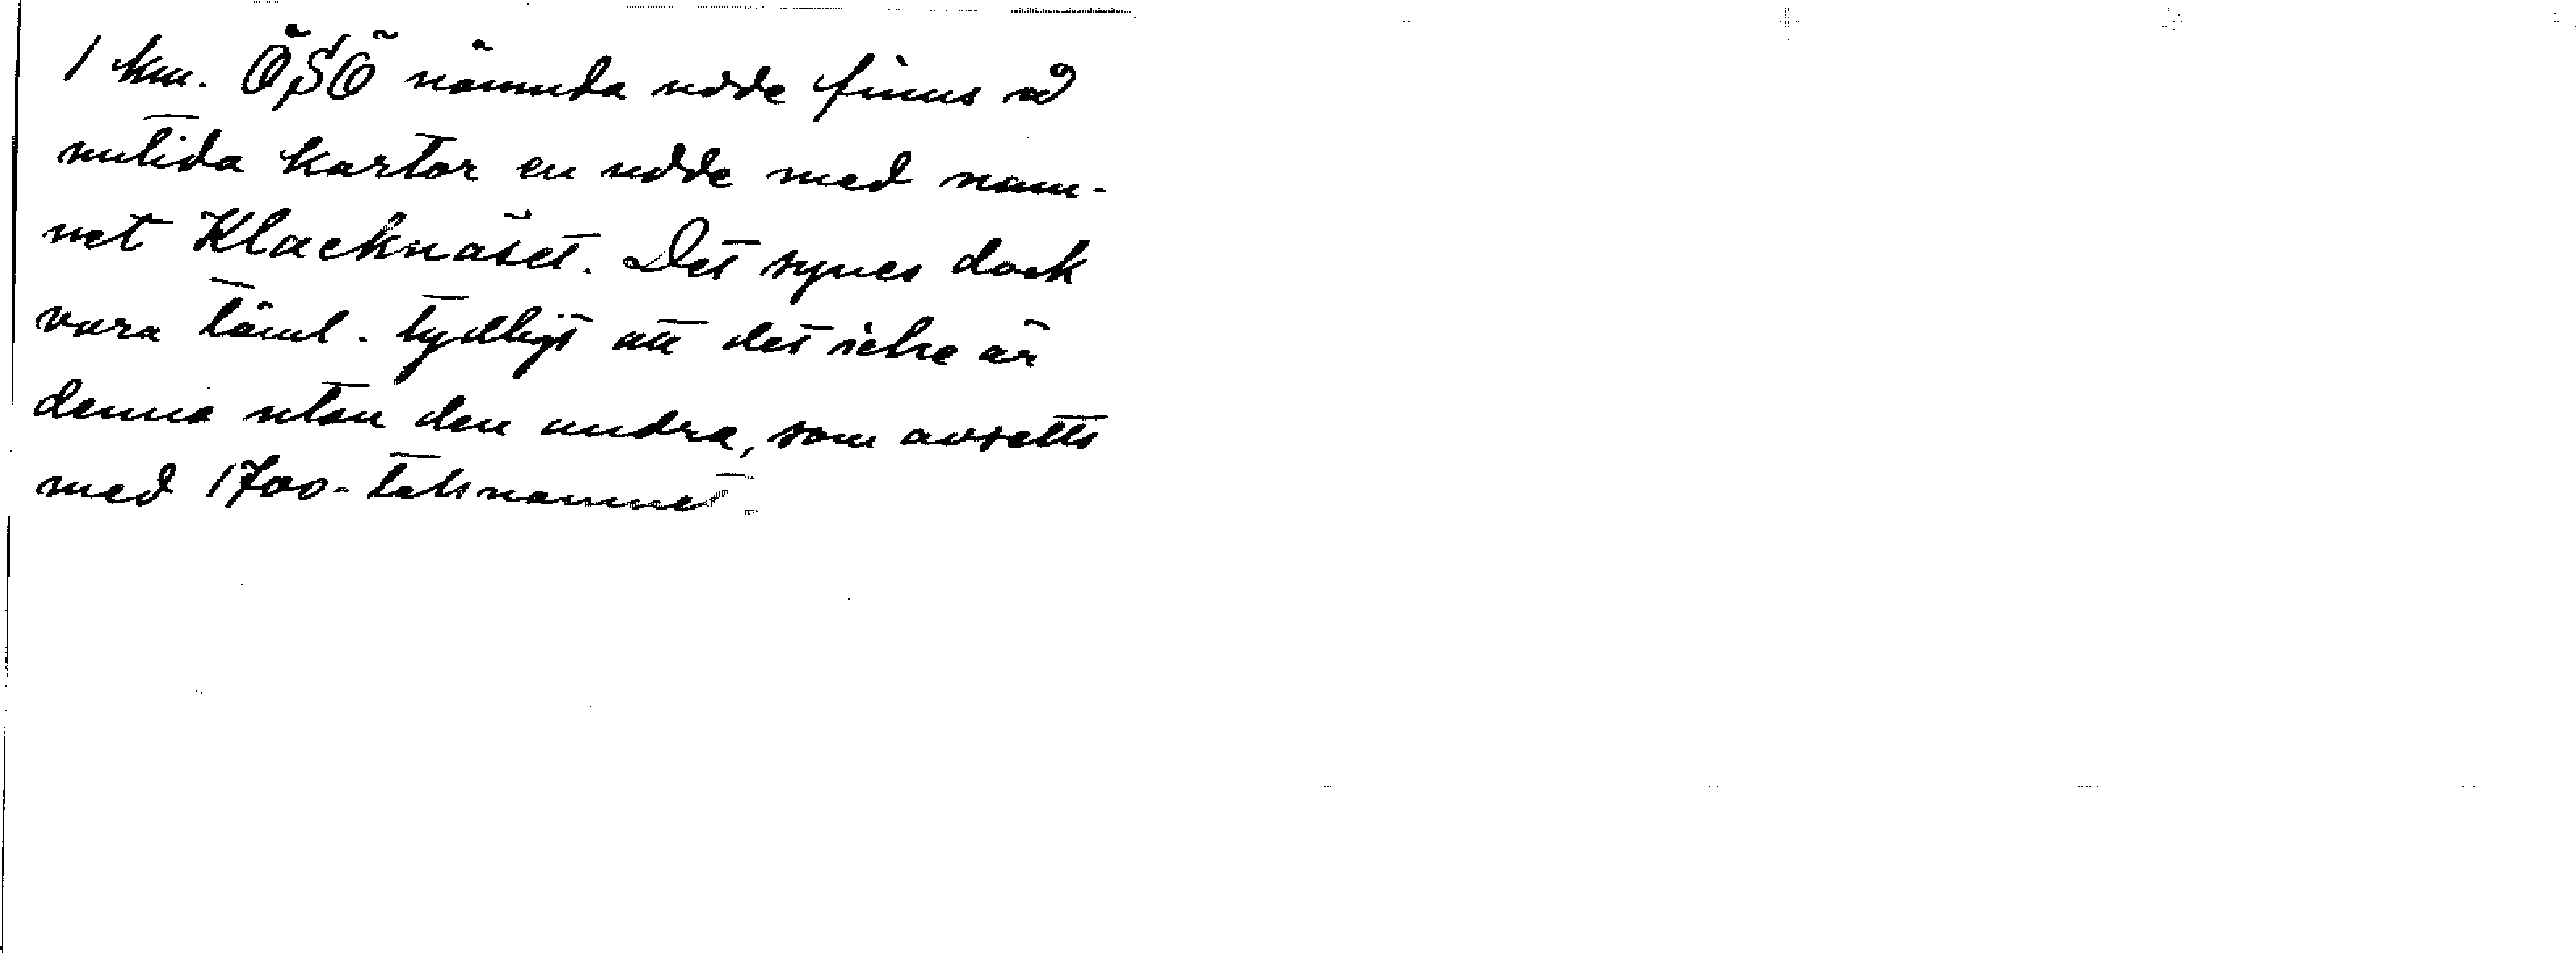 1 km. ÖSÖ nämnda udde finns å
nutida kartor en udde med nam-
net Klacknäset. Det synes dock
vara täml. tydligt att det icke är
denna utan den andra, som avsetts
med 1700-talsnamnet.